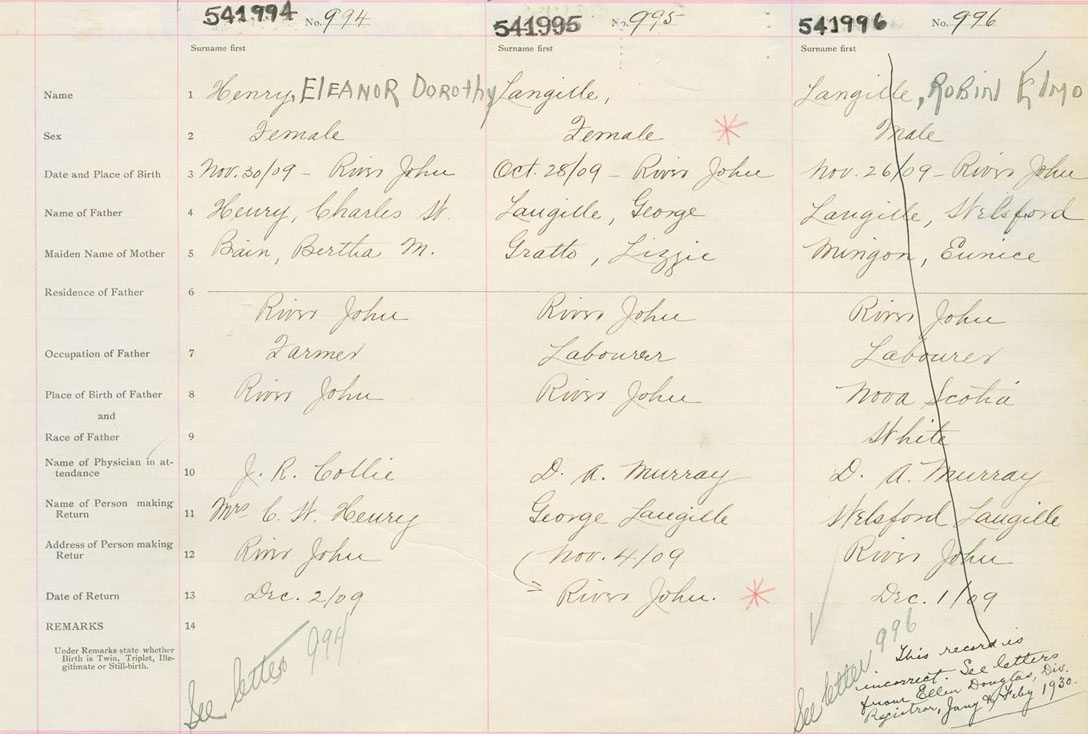 541994 No. 994 541995 No. 995 541996 No. 996
Surname first Surname first Surname first
Name 1 Henry, ELEANOR DOROTHY Langille, Langille, ROBIN ELMO
Sex 2 Female Female Male
Date and Place of Birth 3 Nov. 30/09 - River John Oct. 28/09 - River John Nov. 26/09 - River John
Name of Father 4 Henry, Charles W. Langille, George Langille, Welsford
Maiden Name of Mother 5 Bain, Bertha M. Gratto, Lizzie Mingon, Eunice
Residence of Father 6
River John River John River John
Occupation of Father 7 Farmer Labourer Labourer
Place of Birth of Father 8 River John River John Nova Scotia
and
Race of Father 9 White
Name of Physician in at-
tendance 10 J. R. Collie D. A. Murray D. A. Murray
Name of Person making
Return 11 Mrs C. W. Henry George Langille Welsford Langille
Address of Person making
Retur 12 River John Nov. 4/09 River John
Date of Return 13 Dec. 2/09 River John. Dec. 1/09
REMARKS 14
Under Remarks state whether
Birth is Twin, Triplet, Ille-
gitimate or Still-birth.
See letter 994
See letter 996
This record is
incorrect. See letters
from Ellen Douglas, Div.
Registrar, Jany & Feby 1930.